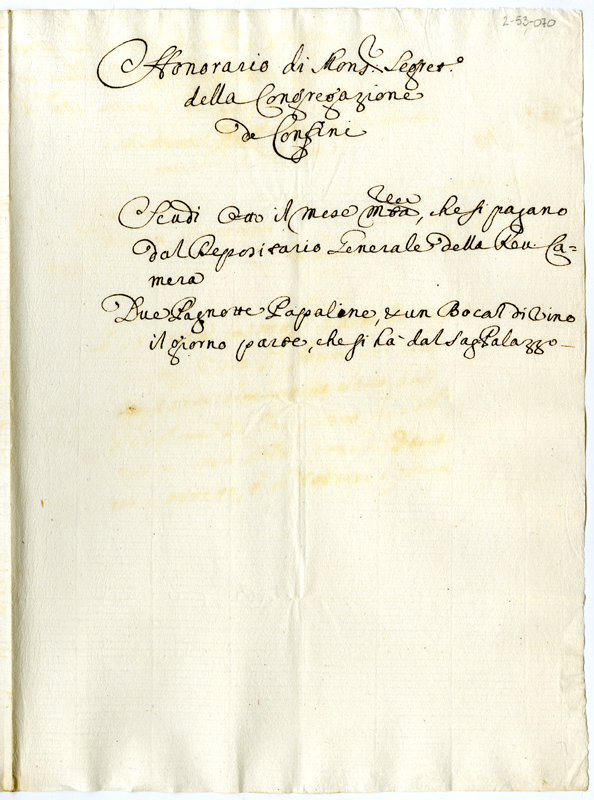 2-53-070
Honorario di Mons.r Segret.o
della Congregazione
de Confini
Scudi Otto il mese, che si pagano
dal Depositario Generale della Reu Ca=
mera
Due Pagnotte Papaline, & un Bocal di vino
il giorno parte, che si hà dal Sag Palazzo